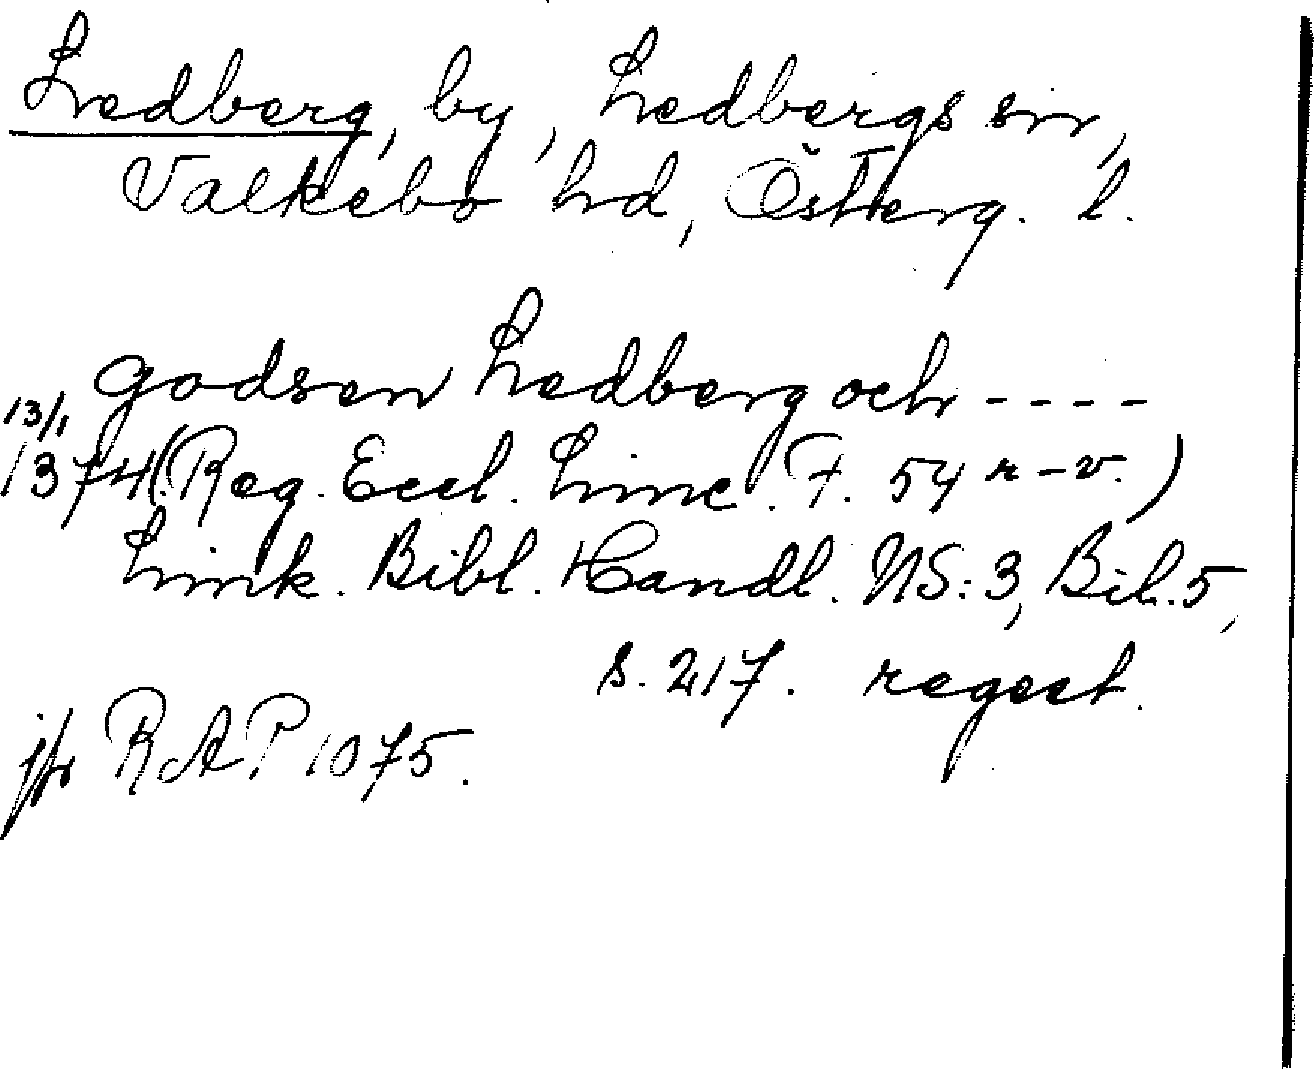 Ledberg, by, Ledbergs sn,
Valkebo hd, Österg. l.
godsen Ledberg och ----
13/1
1374 (Reg. Eccl. Linc. F. 54 r-v.)
Link. Bibl. Handl. NS: 3, Bil. 5,
s. 217. regest.
jfr RAP 1075.